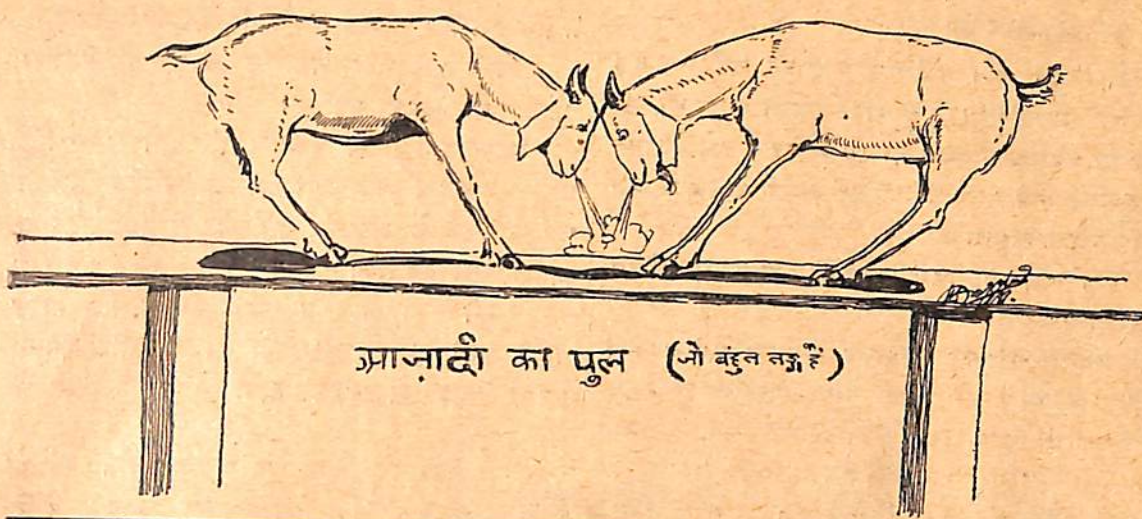 आज़ादी का पुल (जो बहुत तङ्ग है)